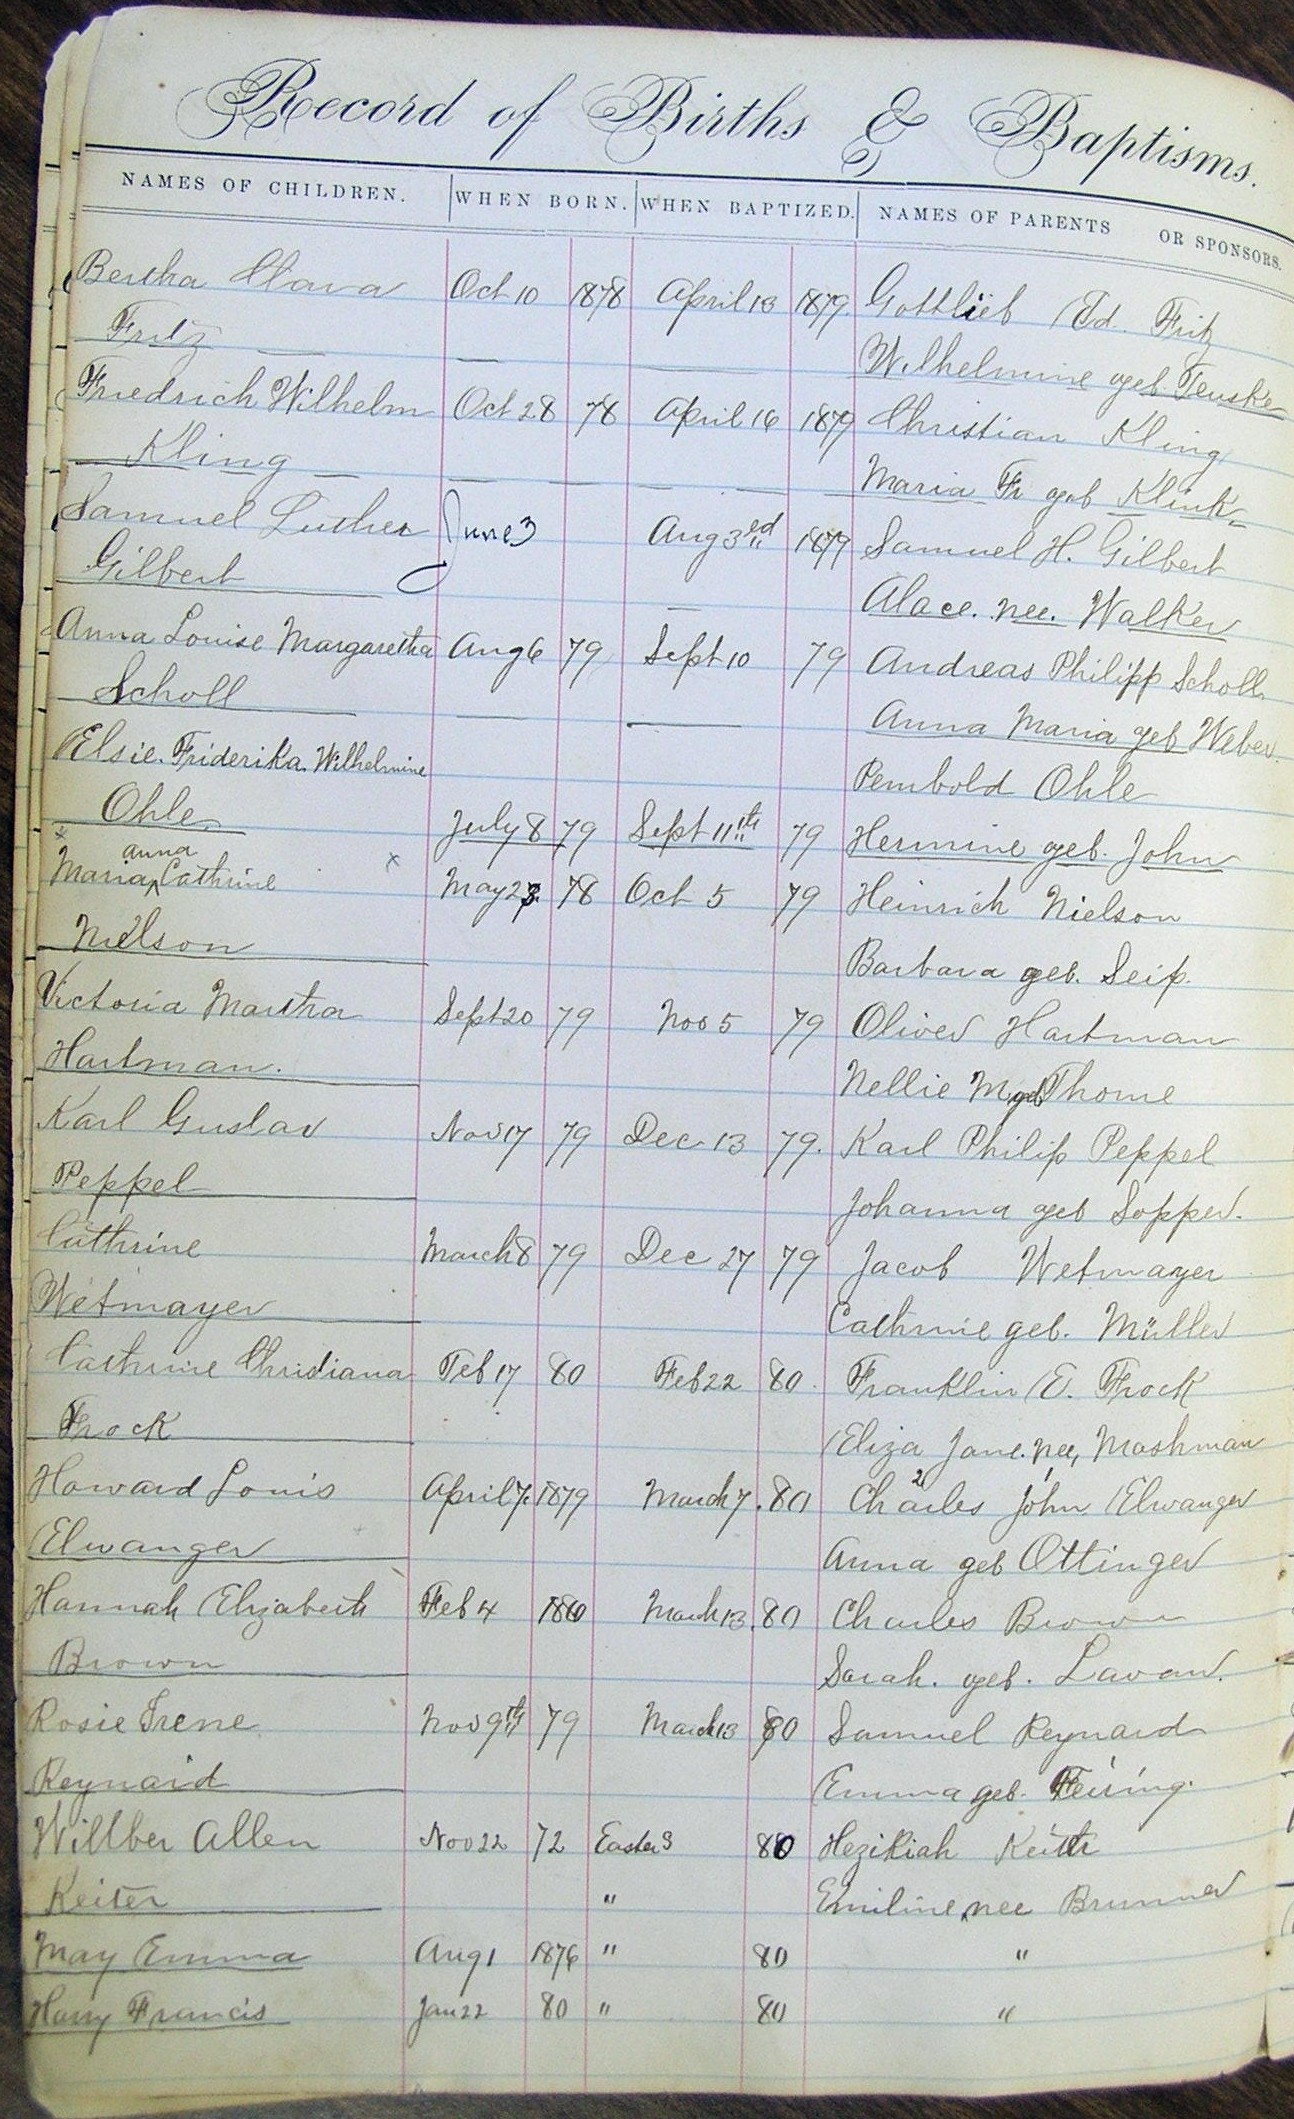 Record of Births & Baptisms.
NAMES OF CHILDREN. WHEN BORN. WHEN BAPTIZED. NAMES OF PARENTS OR SPONSORS.
Bertha Clara Oct 10 1878 April 13 1879 Gottlieb Ed. Fritz
Fritz Wilhelmine geb. Tenske
Friedrich Wilhelm Oct 28 78 April 16 1879 Christian Kling
Kling Maria Fr geb Klink
Samuel Luther June 3 Aug 3rd 1879 Samuel H. Gilbert
Gilbert Alace. nee. Walker
Anna Louise Margaretha Aug 6 79 Sept 10 79 Andreas Philipp Scholl
Scholl Anna Maria geb Weber.
Elsie. Friderika Wilhelmine Rembold Ohle
Ohle July 8 79 Sept 11th 79 Hermine geb. John
anna
Maria Cathrine x May 23 78 Oct 5 79 Heinrich Nielson
Nielson Barbara geb. Seip.
Victoria Martha Sept 20 79 Nov 5 79 Oliver Hartman
Hartman. Nellie M geb Thome
Karl Gustav Nov 17 79 Dec 13 79. Karl Philip Peppel
Peppel Johanna geb Sopper.
Cathrine March 8 79 Dec 27 79 Jacob Wetmayer
Wetmayer Cathrine geb. Müller
Cathrine Christiana Feb 17 80 Feb 22 80. Franklin E. Frock
Frock Eliza Jane. nee, Mashman
Howard Louis April 7. 1879 March 7. 80 Charles 2 John 1 Elwanger
Elwanger Anna geb Ottinger
Hannah Elizabeth Feb 4 1880 March 13. 80 Charles Brown
Brown Sarah. geb. Lavan.
Rosie Irene Nov 9th 79 March 13 80 Samuel Reynard
Reynard Emma geb.
Willber Allen Nov 22 72 Easter 80 Hezikiah
Keiter " Emiline, nee Brunner
May Emma Aug 1 1876 " 80 "
Harry Francis Jan 22 80 " 80 "